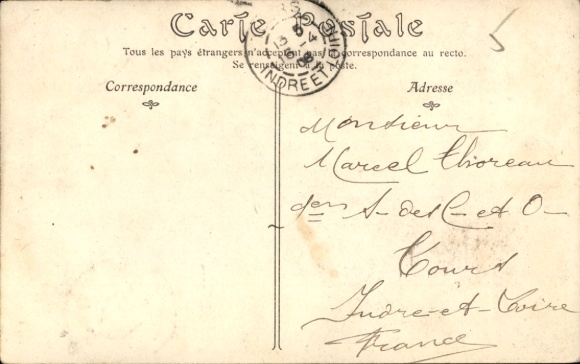 Carte Postale
Tous les pays étrangers n'acceptent pas la correspondance au recto.
Se renseignent à la poste.
INDRE ET
5
Correspondance
Adresse
Monsieur
Marcel Thoreau
dem S- des C- et O-
Tours
Indre-et-Loire
France